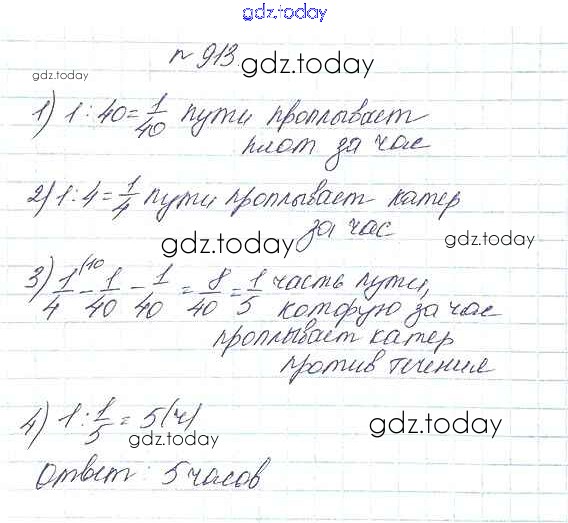 gdz.today
№ 913.
gdz.today
gdz.today
1) 1 : 40 = 1/40 пути проплывает
плот за час
2) 1 : 4 = 1/4 пути проплывает катер
за час
gdz.today
gdz.today
3) 1/4 \10 - 1/40 - 1/40 = 8/40 = 1/5 часть пути,
которую за час
проплывает катер
против течения
4) 1 : 1/5 = 5 (ч)
gdz.today
gdz.today
Ответ: 5 часов